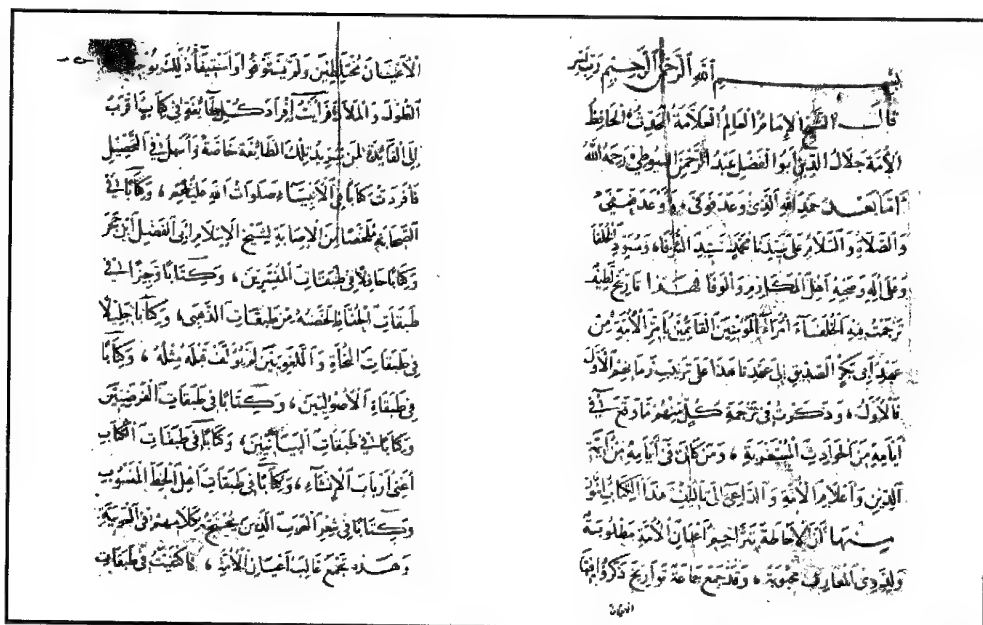 بسم الله الرحمن الرحيم رب يسر
قال الشيخ الإمام العالم العلامة المحدث الحافظ
الأمة جلال الدين أبو الفضل عبد الرحمن السيوطي رحمه الله
أما بعد حمد الله الذي وعد فوفى، وأوعد فعفى
والصلاة والسلام على سيدنا محمد سيد الشرفا، ومسود الخلفا
وعلى آله وصحبه أهل المكارم والوفا فهذا تاريخ لطيف
ترجمت فيه الخلفاء أمراء المؤمنين القائمين بأمر الأمة من
عهد أبي بكر الصديق إلى عهدنا هذا على ترتيب زمانهم الأول
فالأول، وذكرت في ترجمة كل منهم ما وقع في
أيامه من الحوادث المستغربة، ومن كان في أيامه من أئمة
الدين وأعلام الأمة والداعي إلى تأليف هذا الكتاب أمور
منها أن الإحاطة بتراجم أعيان الأمة مطلوبة
ولذوي المعارف محبوبة، وقد جمع جماعة تواريخ ذكروا فيها
الأعيان
الأعيان مختلطين ولم يستوفوا واستيفاء ذلك يوجب
الطول والملالة فرأيت إفراد كل طائفة في كتاب أقرب
إلى الفائدة لمن يريد تلك الطائفة خاصة وأسهل في التحصيل
فأفردت كتابا في الأنبياء صلوات الله عليهم، وكتابا في
الصحابة ملخصا من الإصابة لشيخ الإسلام أبي الفضل ابن حجر
وكتابا حافلا في طبقات المفسرين، وكتابا وجيزا في
طبقات الحفاظ لخصته من طبقات الذهبي، وكتابا جليلا
في طبقات النحاة واللغويين لم يؤلف قبله مثله، وكتابا
في طبقات الأصوليين، وكتابا في طبقات الفرضيين
وكتابا في طبقات البيانيين، وكتابا في طبقات الكتاب
أعني أرباب الإنشاء، وكتابا في طبقات أهل الخط المنسوب
وكتابا في شعر العرب الذين يحتج بكلامهم في العربية
وهذه تجمع غالب أعيان الأمة، فاكتفيت في طبقات